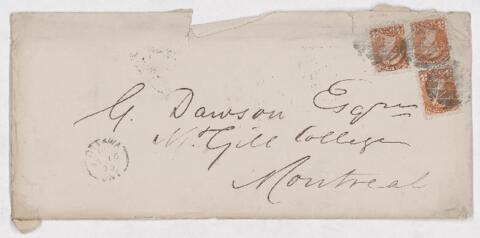 G. Dawson Esqre
McGill College
Montreal
OTTAWA